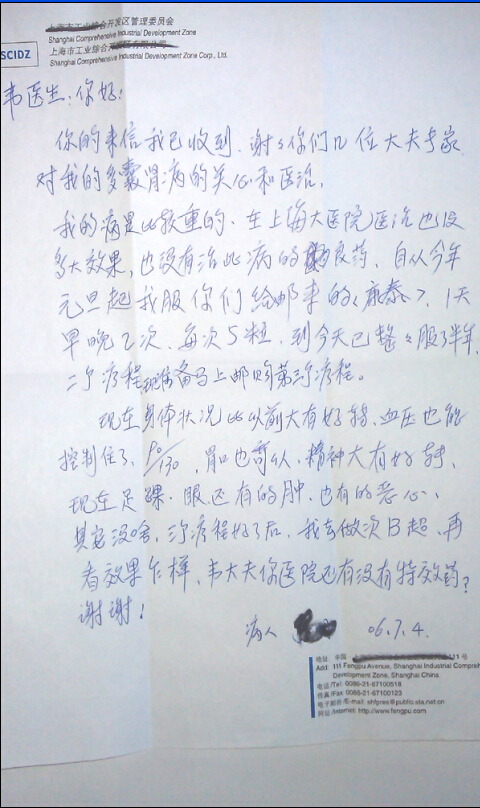 上海市工业综合开发区管理委员会
Shanghai Comprehensive Industrial Development Zone
SCIDZ
上海市工业综合开发区有限公司
Shanghai Comprehensive Industrial Development Zone Corp., Ltd.
韦医生:你好!
你的来信我已收到、谢谢你们几位大夫专家
对我的多囊肾病的关心和医治。
我的病是比较重的、在上海大医院医治也没
多大效果,也没有治此病的良药、自从今年
元旦起我服你们给邮来的《康泰》、1天
早晚2次、每次5粒、到今天已整整服了半年、
二个疗程现准备马上邮购第三个疗程。
现在身体状况比以前大有好转、血压也能
控制住了、90/130、胃口也可以、精神大有好转、
现在足踝、眼还有的肿、也有的恶心、
其它没啥、三个疗程好了后、我去做次B超、再
看效果乍样、韦大夫你医院还有没有特效药?
谢谢!
病人 06.7.4.
地址 中国 111 号
Add: 111 Fengpu Avenue, Shanghai Industrial Compreh
Development Zone, Shanghai China
电话/Tel: 0086-21-67100518
传真/Fax 0086-21-67100123
电子邮件/E-mail: shfpres@public.sta.net.cn
网站/Internet: http://www.fengpu.com